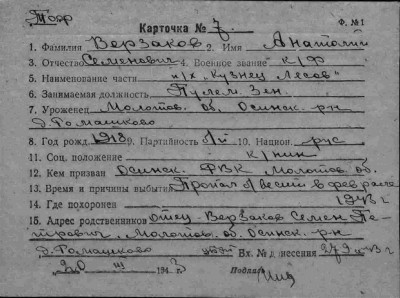 Ф. №1
Карточка № 7
1. Фамилия Верзаков 2. Имя Анатолий
3. Отчество Семенович 4. Военное звание к/ф
5. Наименование части п/х "Кузнец Лесов"
6. Занимаемая должность Пулем. Зен.
7. Уроженец Молотов. об. Осинск. р-н
д. Ромашково
8. Год рожд 1918 9. Партийность б/п 10. Национ. рус
11. Соц. положение к/нин
12. Кем призван Осинск. ФВК Молотов. об.
13. Время и причины выбытия Пропал б/вести в феврале
14. Где похоронен 1943 г
15. Адрес родственников Отец - Верзаков Семен Пе-
трович, Молотов. об. Осинск. р-н
д. Ромашково Вх. № донесения 379 43 г
20 III 1943 Подпись